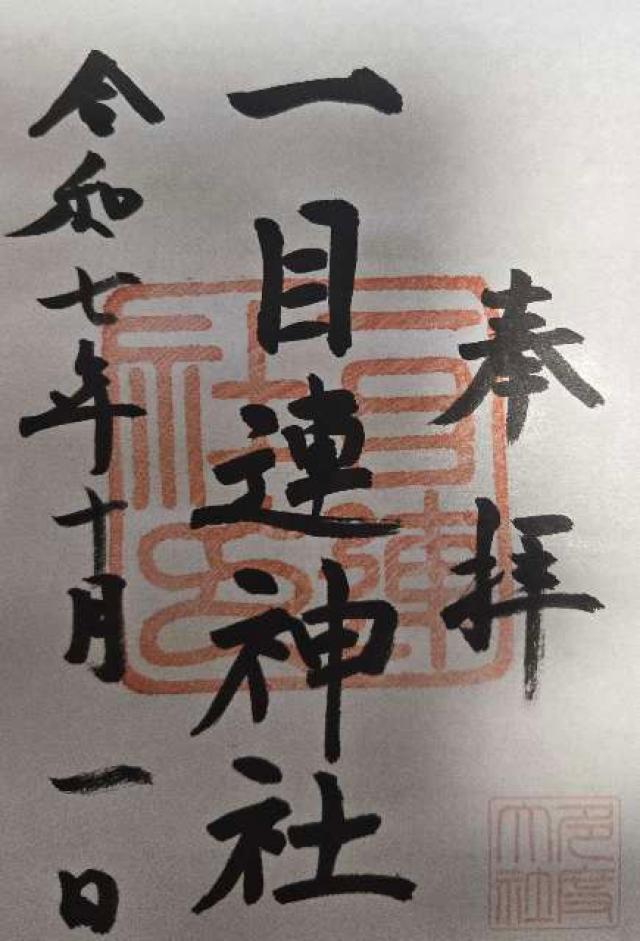 奉拝
一目連神社
令和七年十月一日